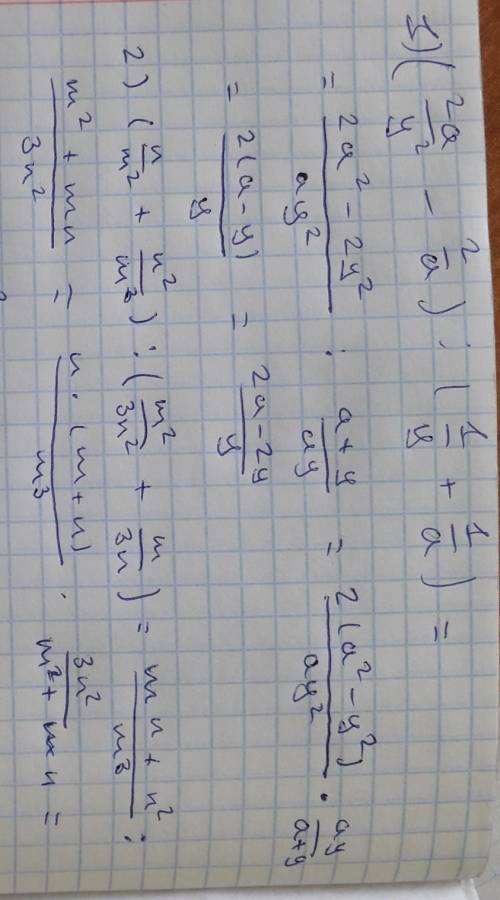 1) (2a/y² − 2/a) : (1/y + 1/a) =
= (2a² − 2y²)/(ay²) : (a+y)/(ay) = 2(a² − y²)/(ay²) · ay/(a+y)
= 2(a−y)/y = (2a−2y)/y
2) (n/m² + n²/m³) : (m²/3n² + m/3n) = (mn + n²)/m³ :
(m² + mn)/3n² = n·(m+n)/m³ · 3n²/(m² + mn) =